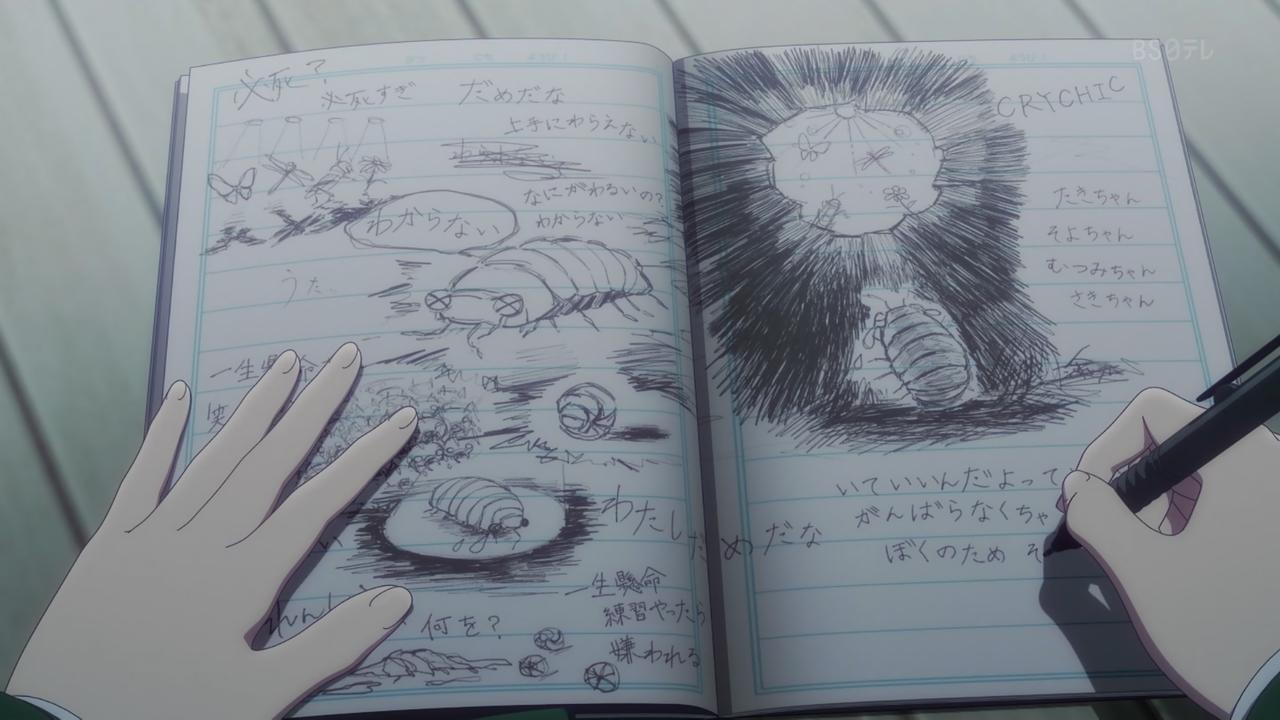 必死？
必死すぎ
だめだな
上手にわらえない
なにがわるいの？
わからない
わからない
うた
一生懸命
わたしだめだな
れんしゅう
何を？
一生懸命
練習やったら
嫌われる
BS日テレ
CRYCHIC
たきちゃん
そよちゃん
むつみちゃん
さきちゃん
いていいんだよって
がんばらなくちゃ
ぼくのため そ